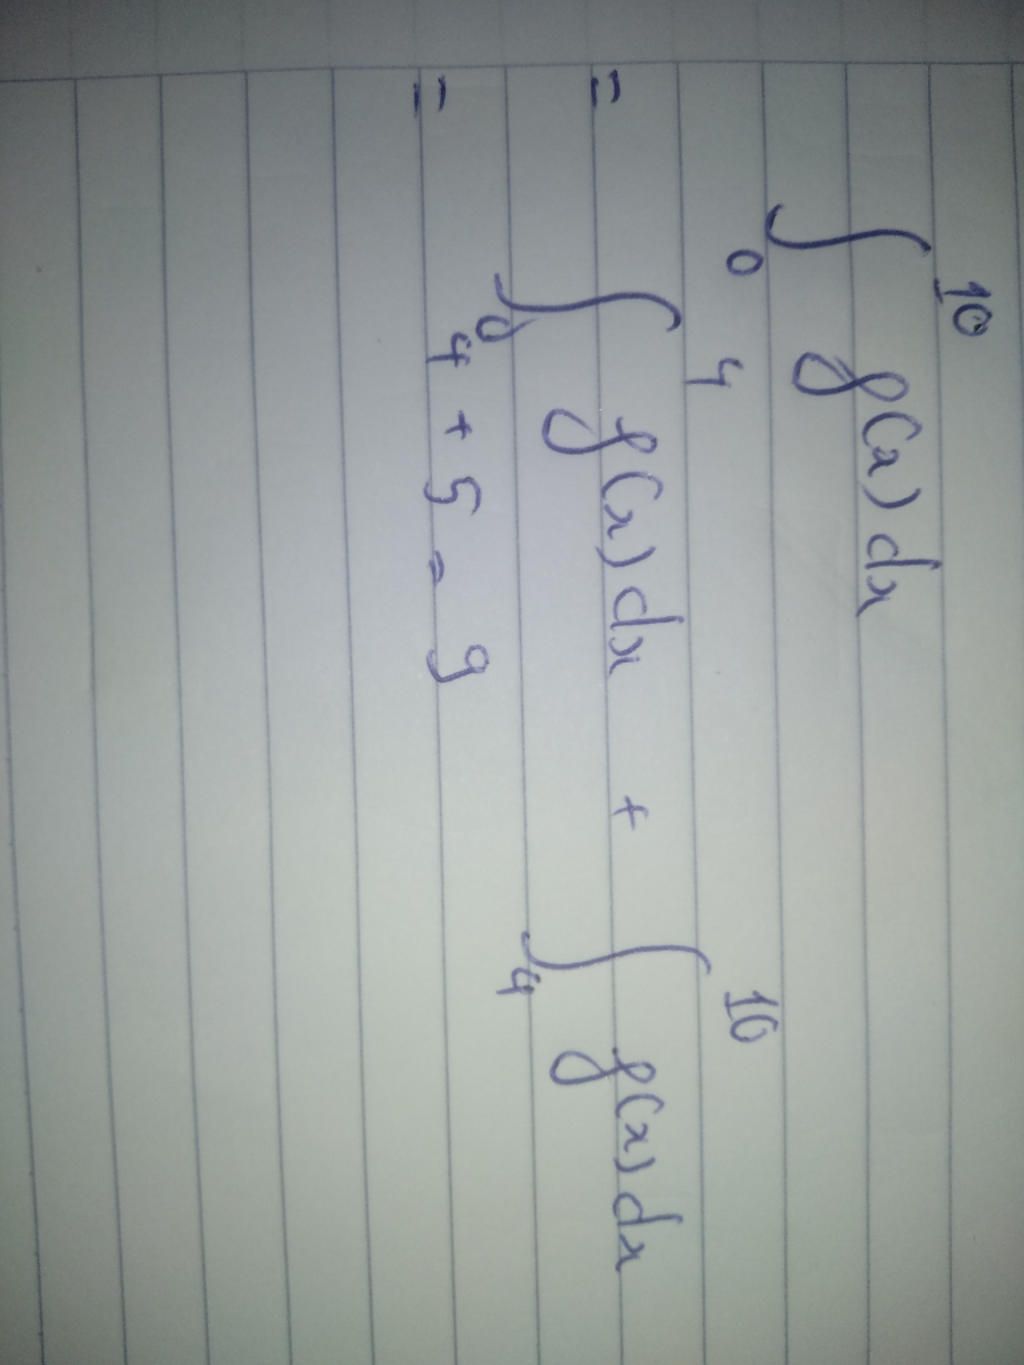 ∫₀¹⁰ f(x) dx
= ∫₀⁴ f(x) dx + ∫₄¹⁰ f(x) dx
= 4 + 5 = 9